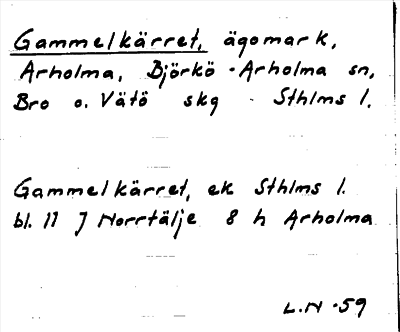 Gammelkärret, ägomark,
Arholma, Björkö-Arholma sn,
Bro o. Vätö skg Sthlms l.
Gammelkärret, ek Sthlms l.
bl. 11 J Norrtälje 8 h Arholma
L.N -59